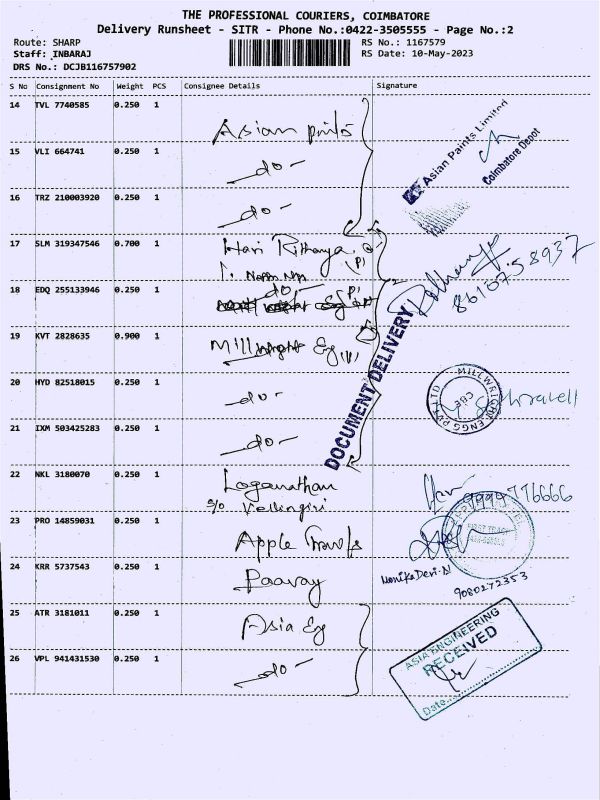 THE PROFESSIONAL COURIERS, COIMBATORE
Delivery Runsheet - SITR - Phone No.:0422-3505555 - Page No.:2
Route: SHARP
RS No.: 1167579
Staff: INBARAJ
RS Date: 10-May-2023
DRS No.: DCJB116757902
S No Consignment No Weight PCS Consignee Details Signature
14 TVL 7740585 0.250 1
Asian paints
Asian Paints Limited
Coimbatore Depot
15 VLI 664741 0.250 1
-do-
16 TRZ 210003920 0.250 1
-do-
17 SLM 319347546 0.700 1
Hari Rithanya
8610758937
18 EDQ 255133946 0.250 1
do
DOCUMENT DELIVERY
19 KVT 2828635 0.900 1
Millwright Eg
20 HYD 82518015 0.250 1
-do-
MILLWRIGHT ENGG PVT LTD
CBE
21 IXM 503425283 0.250 1
-do-
22 NKL 3180070 0.250 1
Loganathan
S/o Vellingiri
776666
23 PRO 14859031 0.250 1
Apple Travels
24 KRR 5737543 0.250 1
Paavay
Monika Devi.N
9080272353
25 ATR 3181011 0.250 1
Asia Eg
ASIA ENGINEERING
RECEIVED
Date
26 VPL 941431530 0.250 1
-do-